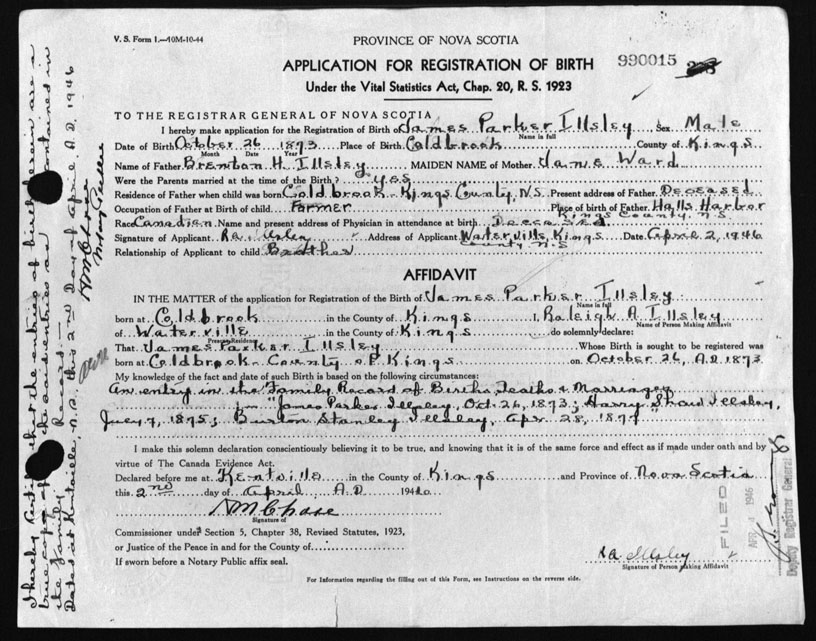 V. S. Form 1.—10M-10-44
PROVINCE OF NOVA SCOTIA
APPLICATION FOR REGISTRATION OF BIRTH
990015
Under the Vital Statistics Act, Chap. 20, R. S. 1923
TO THE REGISTRAR GENERAL OF NOVA SCOTIA
I hereby make application for the Registration of Birth of James Parker Illsley Sex Male
Name in full
Date of Birth October 26 1873 Place of Birth Coldbrook County of Kings
Month Date Year
Name of Father Brenton H. Illsley MAIDEN NAME of Mother Jane Ward
Were the Parents married at the time of the Birth? yes
Residence of Father when child was born Coldbrook Kings County, N.S. Present address of Father Deceased
Occupation of Father at Birth of child Farmer Place of birth of Father Halls Harbor
Kings County, N.S.
Race Canadian Name and present address of Physician in attendance at birth Deceased
Signature of Applicant R.A. Illsley Address of Applicant Waterville, Kings Date April 2, 1946
County N.S.
Relationship of Applicant to child Brother
AFFIDAVIT
IN THE MATTER of the application for Registration of the Birth of James Parker Illsley
Name in full
born at Coldbrook in the County of Kings I, Raleigh A Illsley
Name of Person Making Affidavit
of Waterville in the County of Kings do solemnly declare:
Present Residence
That James Parker Illsley Whose Birth is sought to be registered was
born at Coldbrook County of Kings on October 26, A.D. 1873
My knowledge of the fact and date of such Birth is based on the following circumstances:
An entry in the Family Record of Births, Deaths & Marriages
"James Parker Illsley, Oct. 26, 1873; Harry Shaw Illsley,
July 7, 1875; Burton Stanley Illsley, Apr. 28, 1877"
I make this solemn declaration conscientiously believing it to be true, and knowing that it is of the same force and effect as if made under oath and by
virtue of The Canada Evidence Act.
Declared before me at Kentville in the County of Kings and Province of Nova Scotia
this 2nd day of April A.D. 1946
R M Chase
Signature of
Commissioner under Section 5, Chapter 38, Revised Statutes, 1923,
or Justice of the Peace in and for the County of
If sworn before a Notary Public affix seal.
R A Illsley
Signature of Person Making Affidavit
For Information regarding the filling out of this Form, see Instructions on the reverse side.
FILED
APR 4 1946
Deputy Registrar General
I hereby certify that the entries of birth herein are a
true copy of the said entries as contained in
the Family Record.—
Dated at Kentville, N.S. this 2nd day of April A.D. 1946
R M Chase
Notary Public